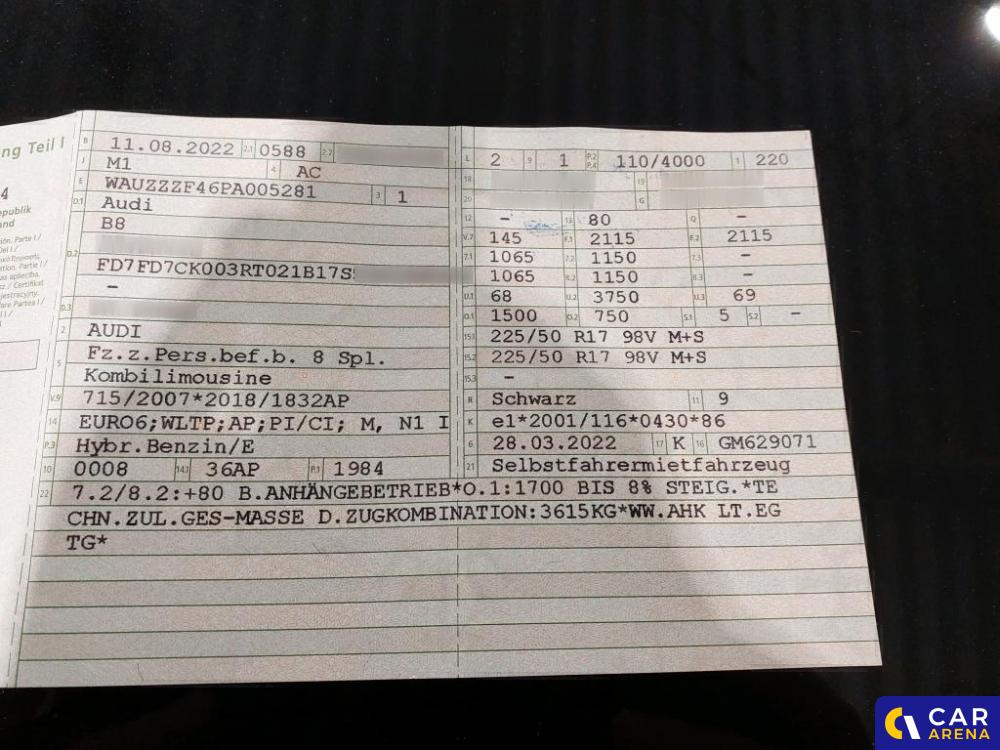 ng Teil I
B 11.08.2022 2.1 0588 2.2
L 2 9 1 P.2 P.4 110/4000 T 220
J M1 4 AC
18 19
E WAUZZZF46PA005281 3 1
20 G
4
D.1 Audi
12 - 13 80 Q -
epublik
B8
V.7 145 F.1 2115 F.2 2115
and
7.1 1065 7.2 1150 7.3 -
D.2 FD7FD7CK003RT021B17S
1065 8.2 1150 8.3 -
-
U.1 68 U.2 3750 U.3 69
D.3
O.1 1500 O.2 750 S.1 5 S.2 -
2 AUDI
15.1 225/50 R17 98V M+S
5 Fz.z.Pers.bef.b. 8 Spl.
15.2 225/50 R17 98V M+S
Kombilimousine
15.3 -
V.9 715/2007*2018/1832AP
R Schwarz 11 9
14 EURO6;WLTP;AP;PI/CI; M, N1 I
K e1*2001/116*0430*86
P.3 Hybr.Benzin/E
6 28.03.2022 17 K 16 GM629071
10 0008 14.1 36AP P.1 1984
21 Selbstfahrermietfahrzeug
22 7.2/8.2:+80 B.ANHÄNGEBETRIEB*O.1:1700 BIS 8% STEIG.*TE
CHN.ZUL.GES-MASSE D.ZUGKOMBINATION:3615KG*WW.AHK LT.EG
TG*
CAR
ARENA